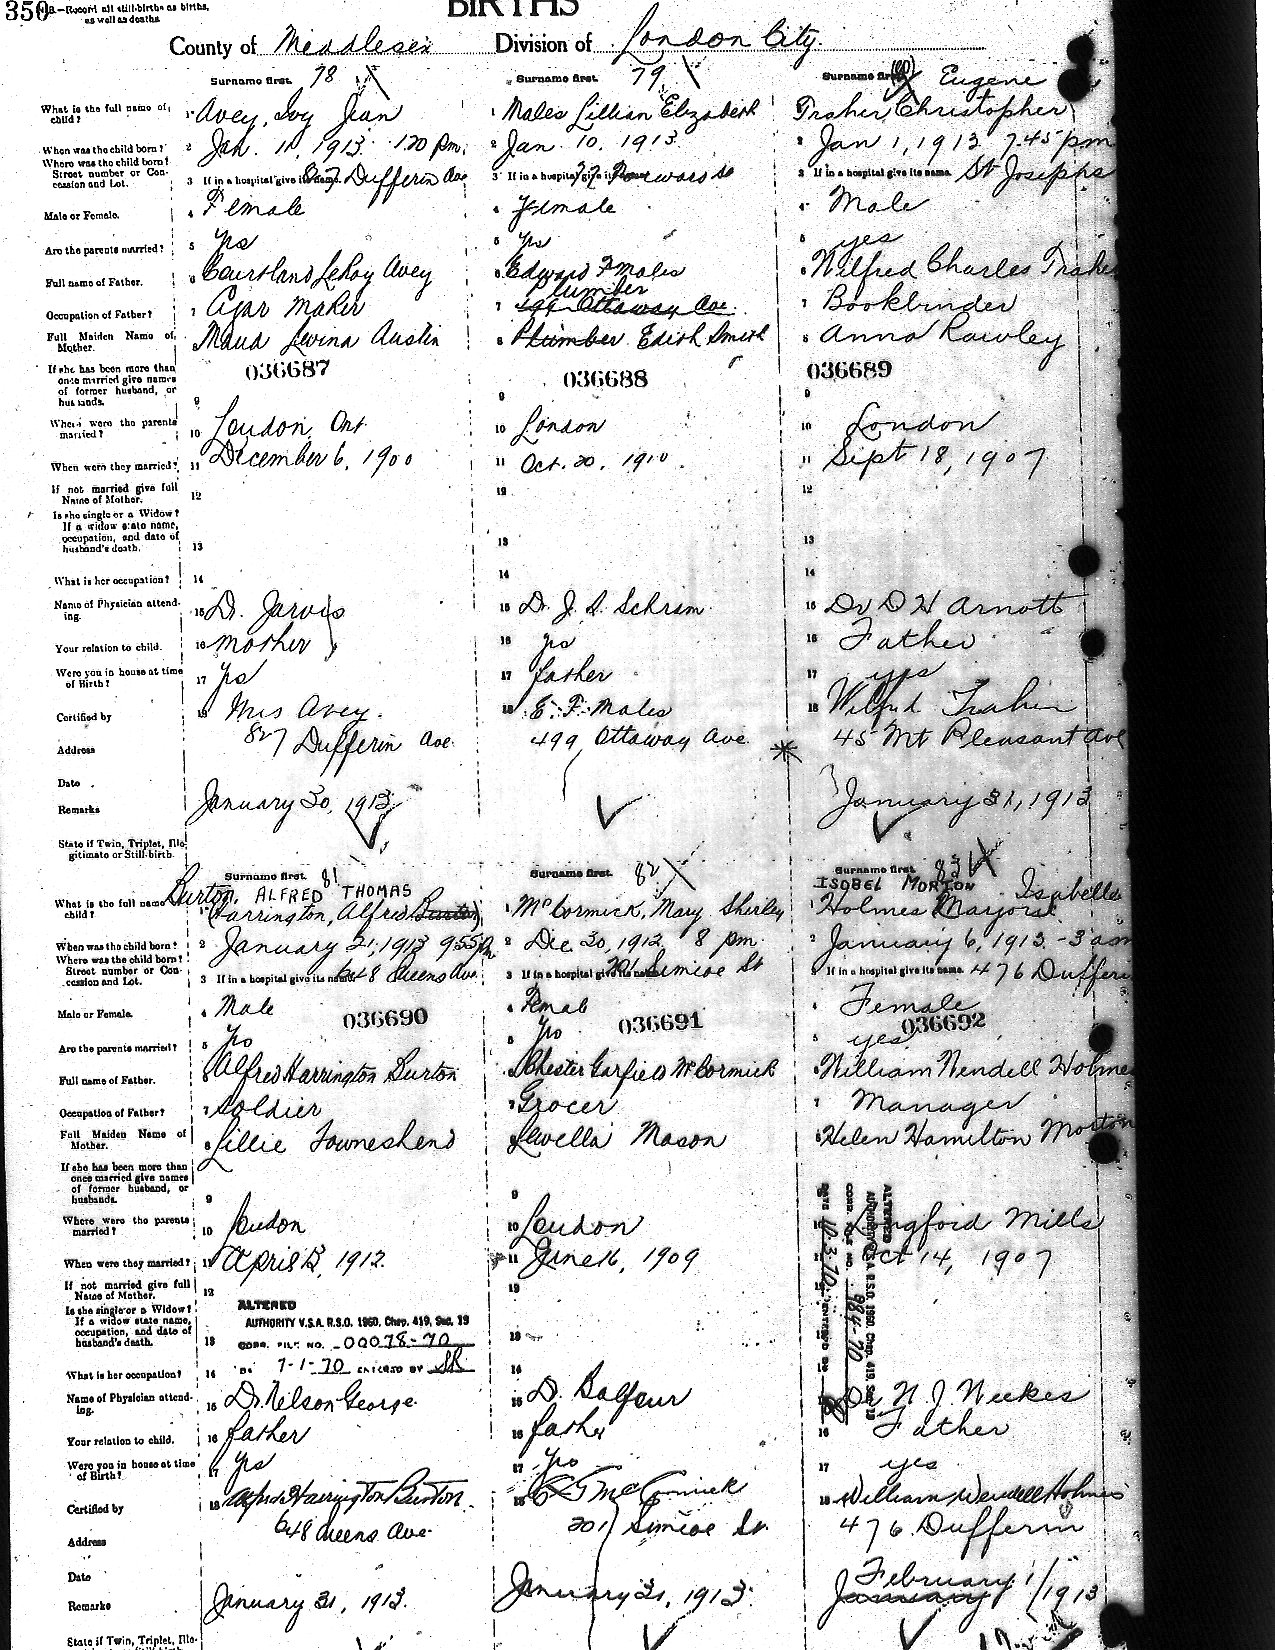 350
N.B.—Record all still-births as births,
as well as deaths.
BIRTHS
County of Middlesex Division of London City.
Surname first. 78
Surname first. 79
Surname first. Eugene
What is the full name of child? 1 Avey, Ivy Jean
1 Males Lillian Elizabeth
Traher Christopher
When was the child born? 2 Jan. 11, 1913 1.20 pm.
2 Jan. 10. 1913
2 Jan 1, 1913 7.45 pm
Where was the child born? Street number or Concession and Lot. 3 If in a hospital give its name. 827 Dufferin Ave
3 If in a hospital give its name.
3 If in a hospital give its name. St Josephs
Male or Female. 4 Female
4 Female
4 Male
Are the parents married? 5 Yes
5 Yes
5 yes
Full name of Father. 6 Courtland LeRoy Avey
6 Edward F Males
6 Wilfred Charles Traher
Occupation of Father? 7 Cigar Maker
Plumber
7 499 Ottaway Ave.
7 Bookbinder
Full Maiden Name of Mother. 8 Maud Levina Austin
8 Plumber Edith Smith
8 Anna Rowley
036687
036688
036689
If she has been more than once married give names of former husband, or husbands. 9
9
9
Where were the parents married? 10 London, Ont.
10 London
10 London
When were they married? 11 December 6, 1900
11 Oct. 20, 1910.
11 Sept 18, 1907
If not married give full Name of Mother. 12
12
12
Is she single or a Widow? If a widow state name, occupation, and date of husband's death. 13
13
13
What is her occupation? 14
14
14
Name of Physician attending. 15 Dr. Jarvis
15 Dr J. S. Schram
15 Dr D H Arnott
Your relation to child. 16 mother
16 yes
16 Father
Were you in house at time of Birth? 17 yes
17 father
17 yes
Certified by 18 Mrs Avey.
18 E. F. Males
18 Wilfred Traher
Address 827 Dufferin Ave.
499 Ottaway Ave.
45 Mt Pleasant Ave
Date
Remarks January 30, 1913
January 31, 1913
State if Twin, Triplet, Illegitimate or Still-birth.
Surname first. 81
Surname first. 82
Surname first. 83
Burton, ALFRED THOMAS
ISOBEL MORTON Isabella
What is the full name child? 1 Harrington, Alfred Burton
1 McCormick, Mary Shirley
1 Holmes Marjorie
When was the child born? 2 January 21, 1913 9.55 pm
2 Dec 30, 1912 8 pm.
2 January 6, 1913 - 3 am
Where was the child born? Street number or Concession and Lot. 3 If in a hospital give its name. 648 Queens Ave.
3 If in a hospital give its name. 201 Simcoe St
3 If in a hospital give its name. 476 Dufferin
Male or Female. 4 Male
4 Female
4 Female
036690
036691
036692
Are the parents married? 5 Yes
5 Yes
5 yes
Full name of Father. 6 Alfred Harrington Burton
6 Chester Garfield McCormick
6 William Wendell Holmes
Occupation of Father? 7 Soldier
7 Grocer
7 Manager
Full Maiden Name of Mother. 8 Lillie Towneshend
8 Lewella Mason
8 Helen Hamilton Morton
If she has been more than once married give names of former husband, or husbands. 9
9
Where were the parents married? 10 London
10 London
Langford Mills
When were they married? 11 April 13, 1912.
11 June 16, 1909
Oct 14, 1907
If not married give full Name of Mother. 12
12
Is she single or a Widow? If a widow state name, occupation, and date of husband's death. 13
13
ALTERED
AUTHORITY V.S.A. R.S.O. 1960, Chap. 419, Sec. 19
CORR. FILE NO. 00078-70
7-1-70 ENTERED BY SR
ALTERED
AUTHORITY V.S.A. R.S.O. 1960, Chap. 419, Sec. 19
CORR. FILE NO. 984-70
What is her occupation? 14
14
Name of Physician attending. 15 Dr. Nelson George
15 D. Balfour
Dr N. J. Weekes
Your relation to child. 16 father
16 father
16 Father
Were you in house at time of Birth? 17 yes
17 yes
17 yes
Certified by 18 Alfred Harrington Burton
18 C G McCormick
18 William Wendell Holmes
Address 648 Queens Ave.
201 Simcoe St.
476 Dufferin
Date
Remarks January 31, 1913.
January 31, 1913
February 1/1913
January
State if Twin, Triplet, Ille-